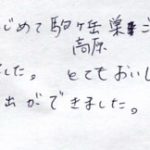 じめて駒ヶ岳巣
高原
した。 とてもおいし
出ができました。